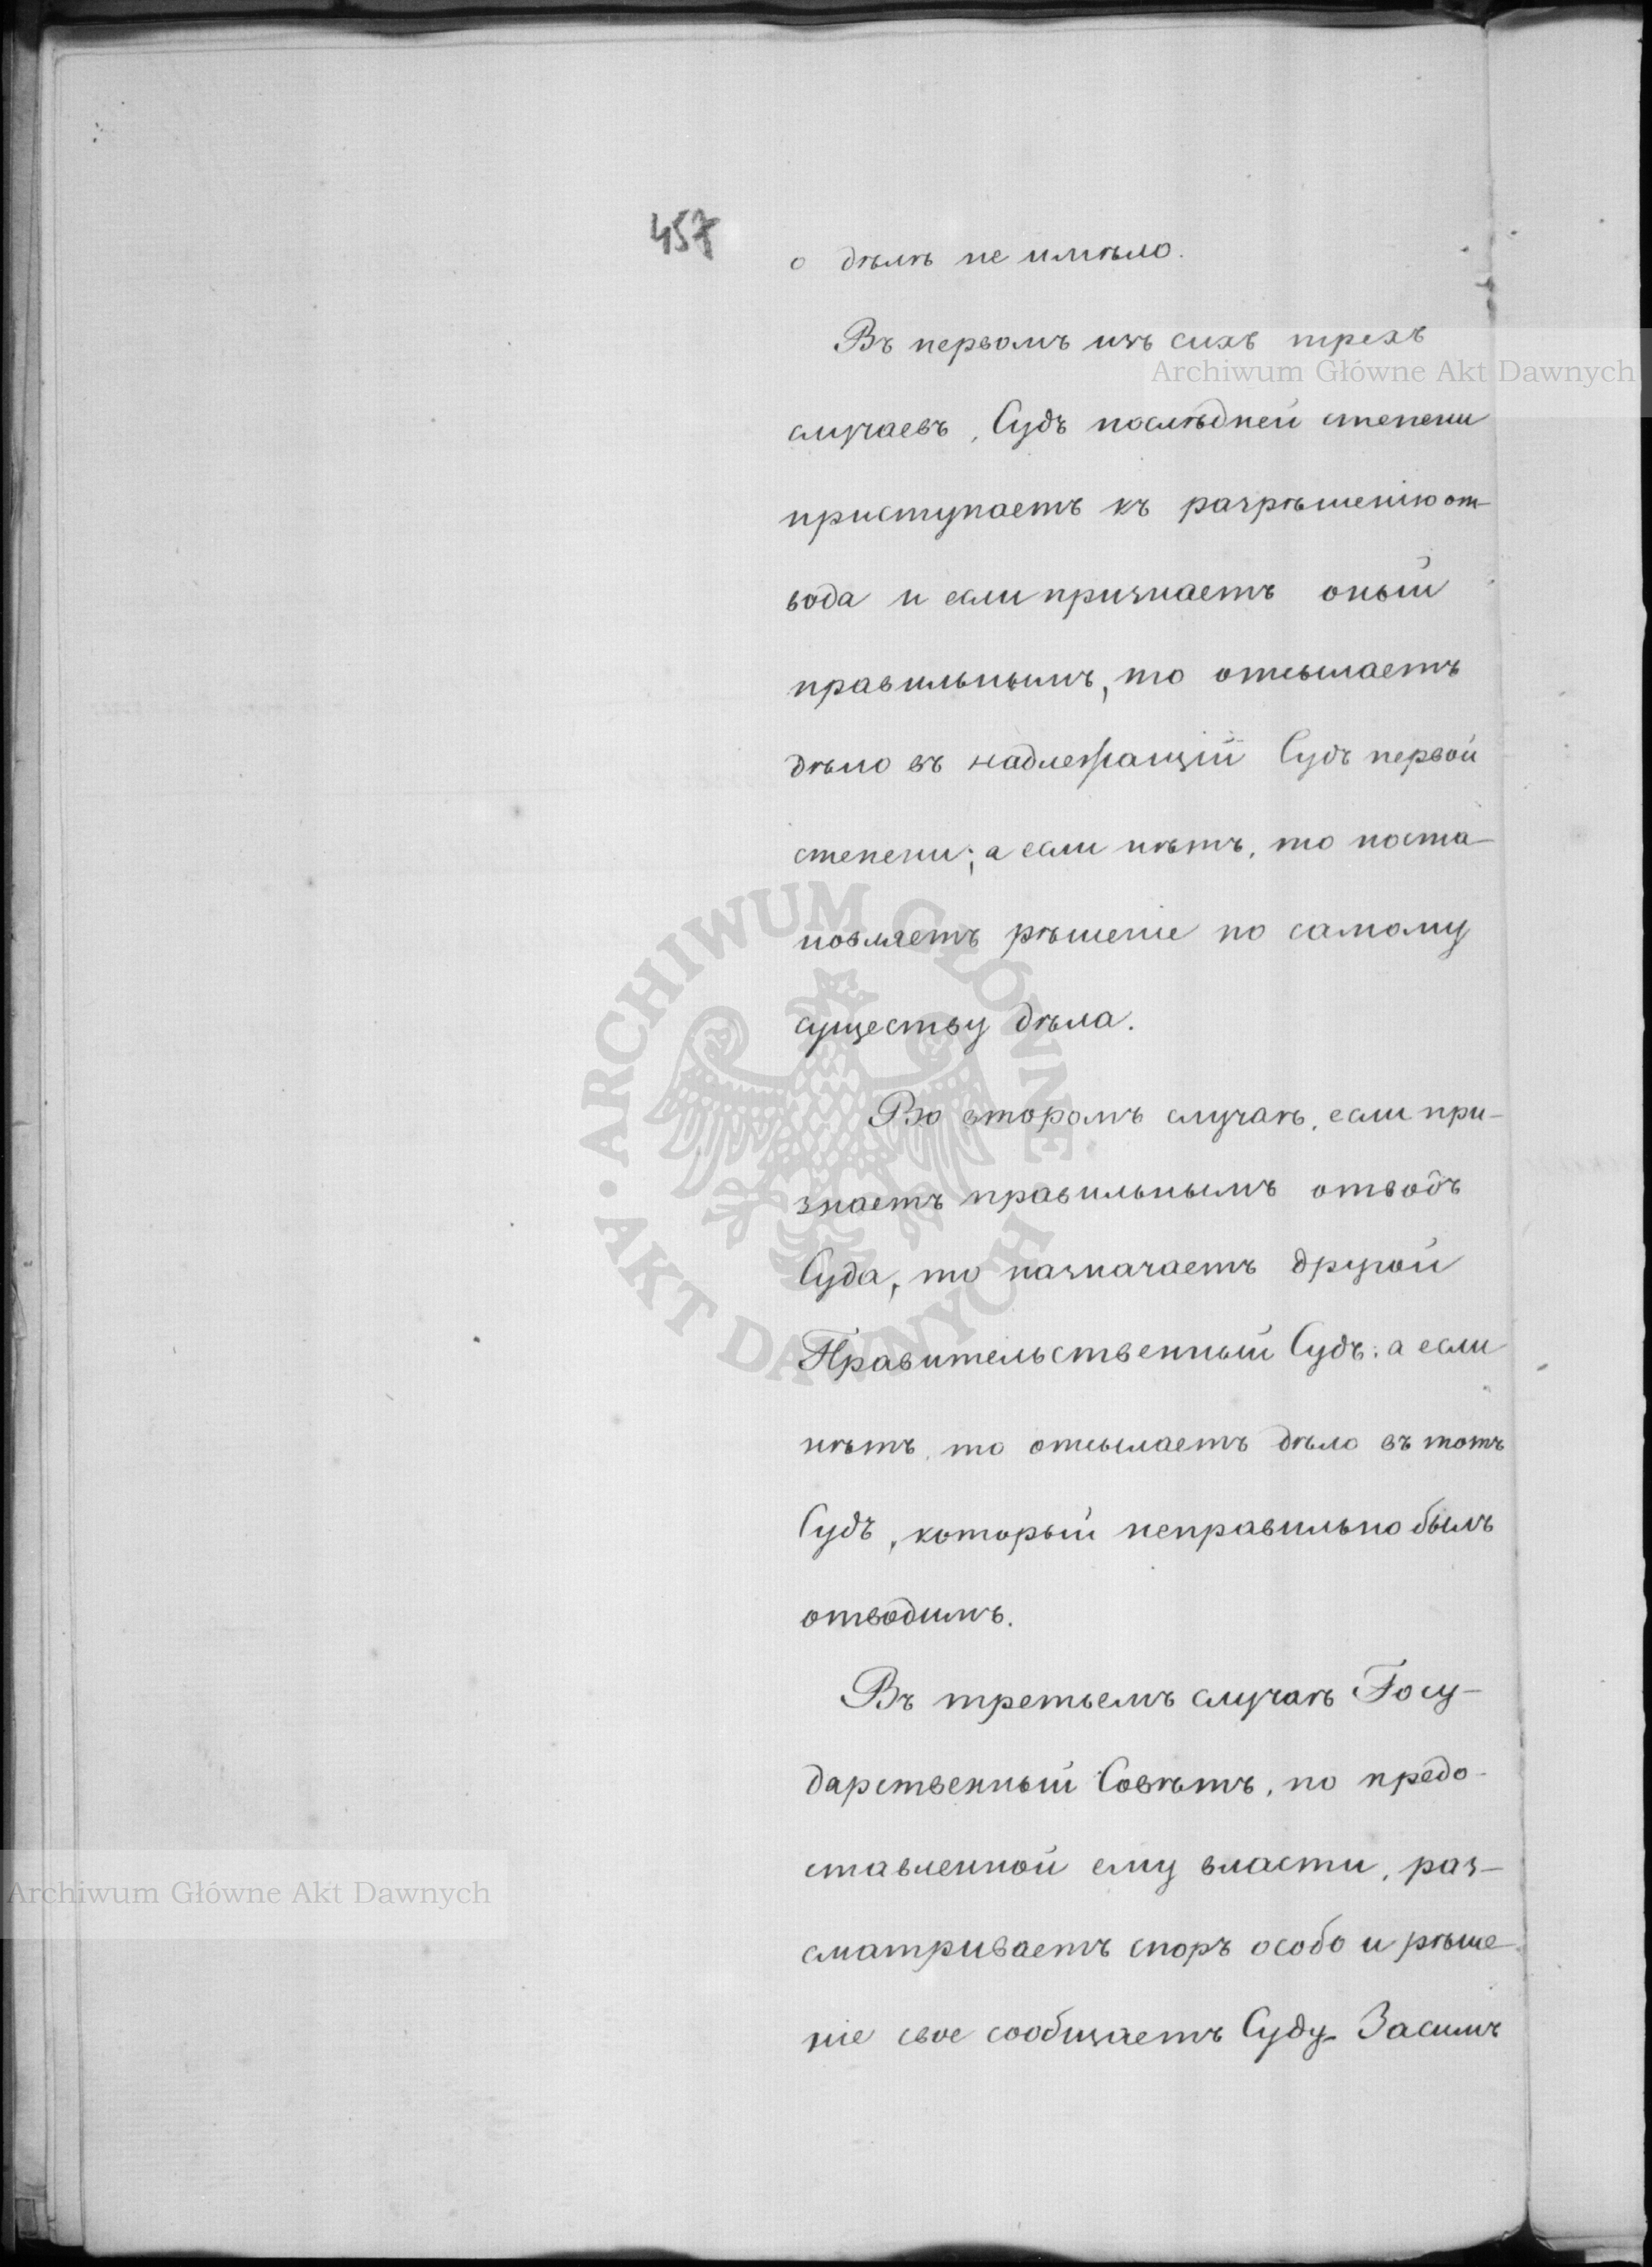 457
о дѣлѣ не имѣло.
Въ первомъ изъ сихъ трехъ
Archiwum Główne Akt Dawnych
случаевъ, Судъ послѣдней степени
приступаетъ къ разрѣшенію от-
вода и если признаетъ оный
правильнымъ, то отсылаетъ
дѣло въ надлежащій Судъ первой
степени; а если нѣтъ, то поста-
новляетъ рѣшеніе по самому
существу дѣла.
Во второмъ случаѣ, если при-
знаетъ правильнымъ отводъ
Суда, то назначаетъ другой
Правительственный Судъ: а если
нѣтъ, то отсылаетъ дѣло въ тотъ
Судъ, который неправильно былъ
отводимъ.
Въ третьемъ случаѣ Госу-
дарственный Совѣтъ, по предо-
ставленной ему власти, раз-
Archiwum Główne Akt Dawnych
сматриваетъ споръ особо и рѣше-
ніе свое сообщаетъ Суду. Засимъ
ARCHIWUM GŁÓWNE • AKT DAWNYCH •